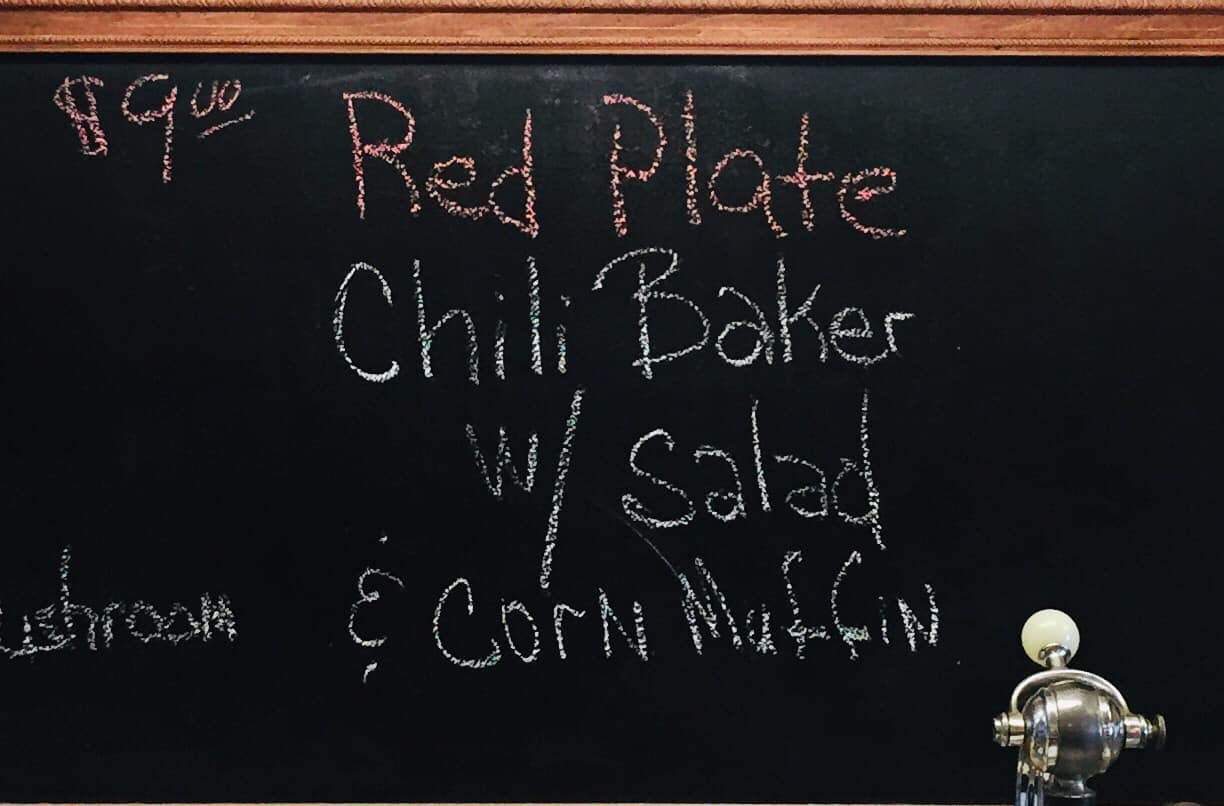 $9.00 Red Plate
Chili Baker
w/ Salad
& Corn Muffin
ushroom